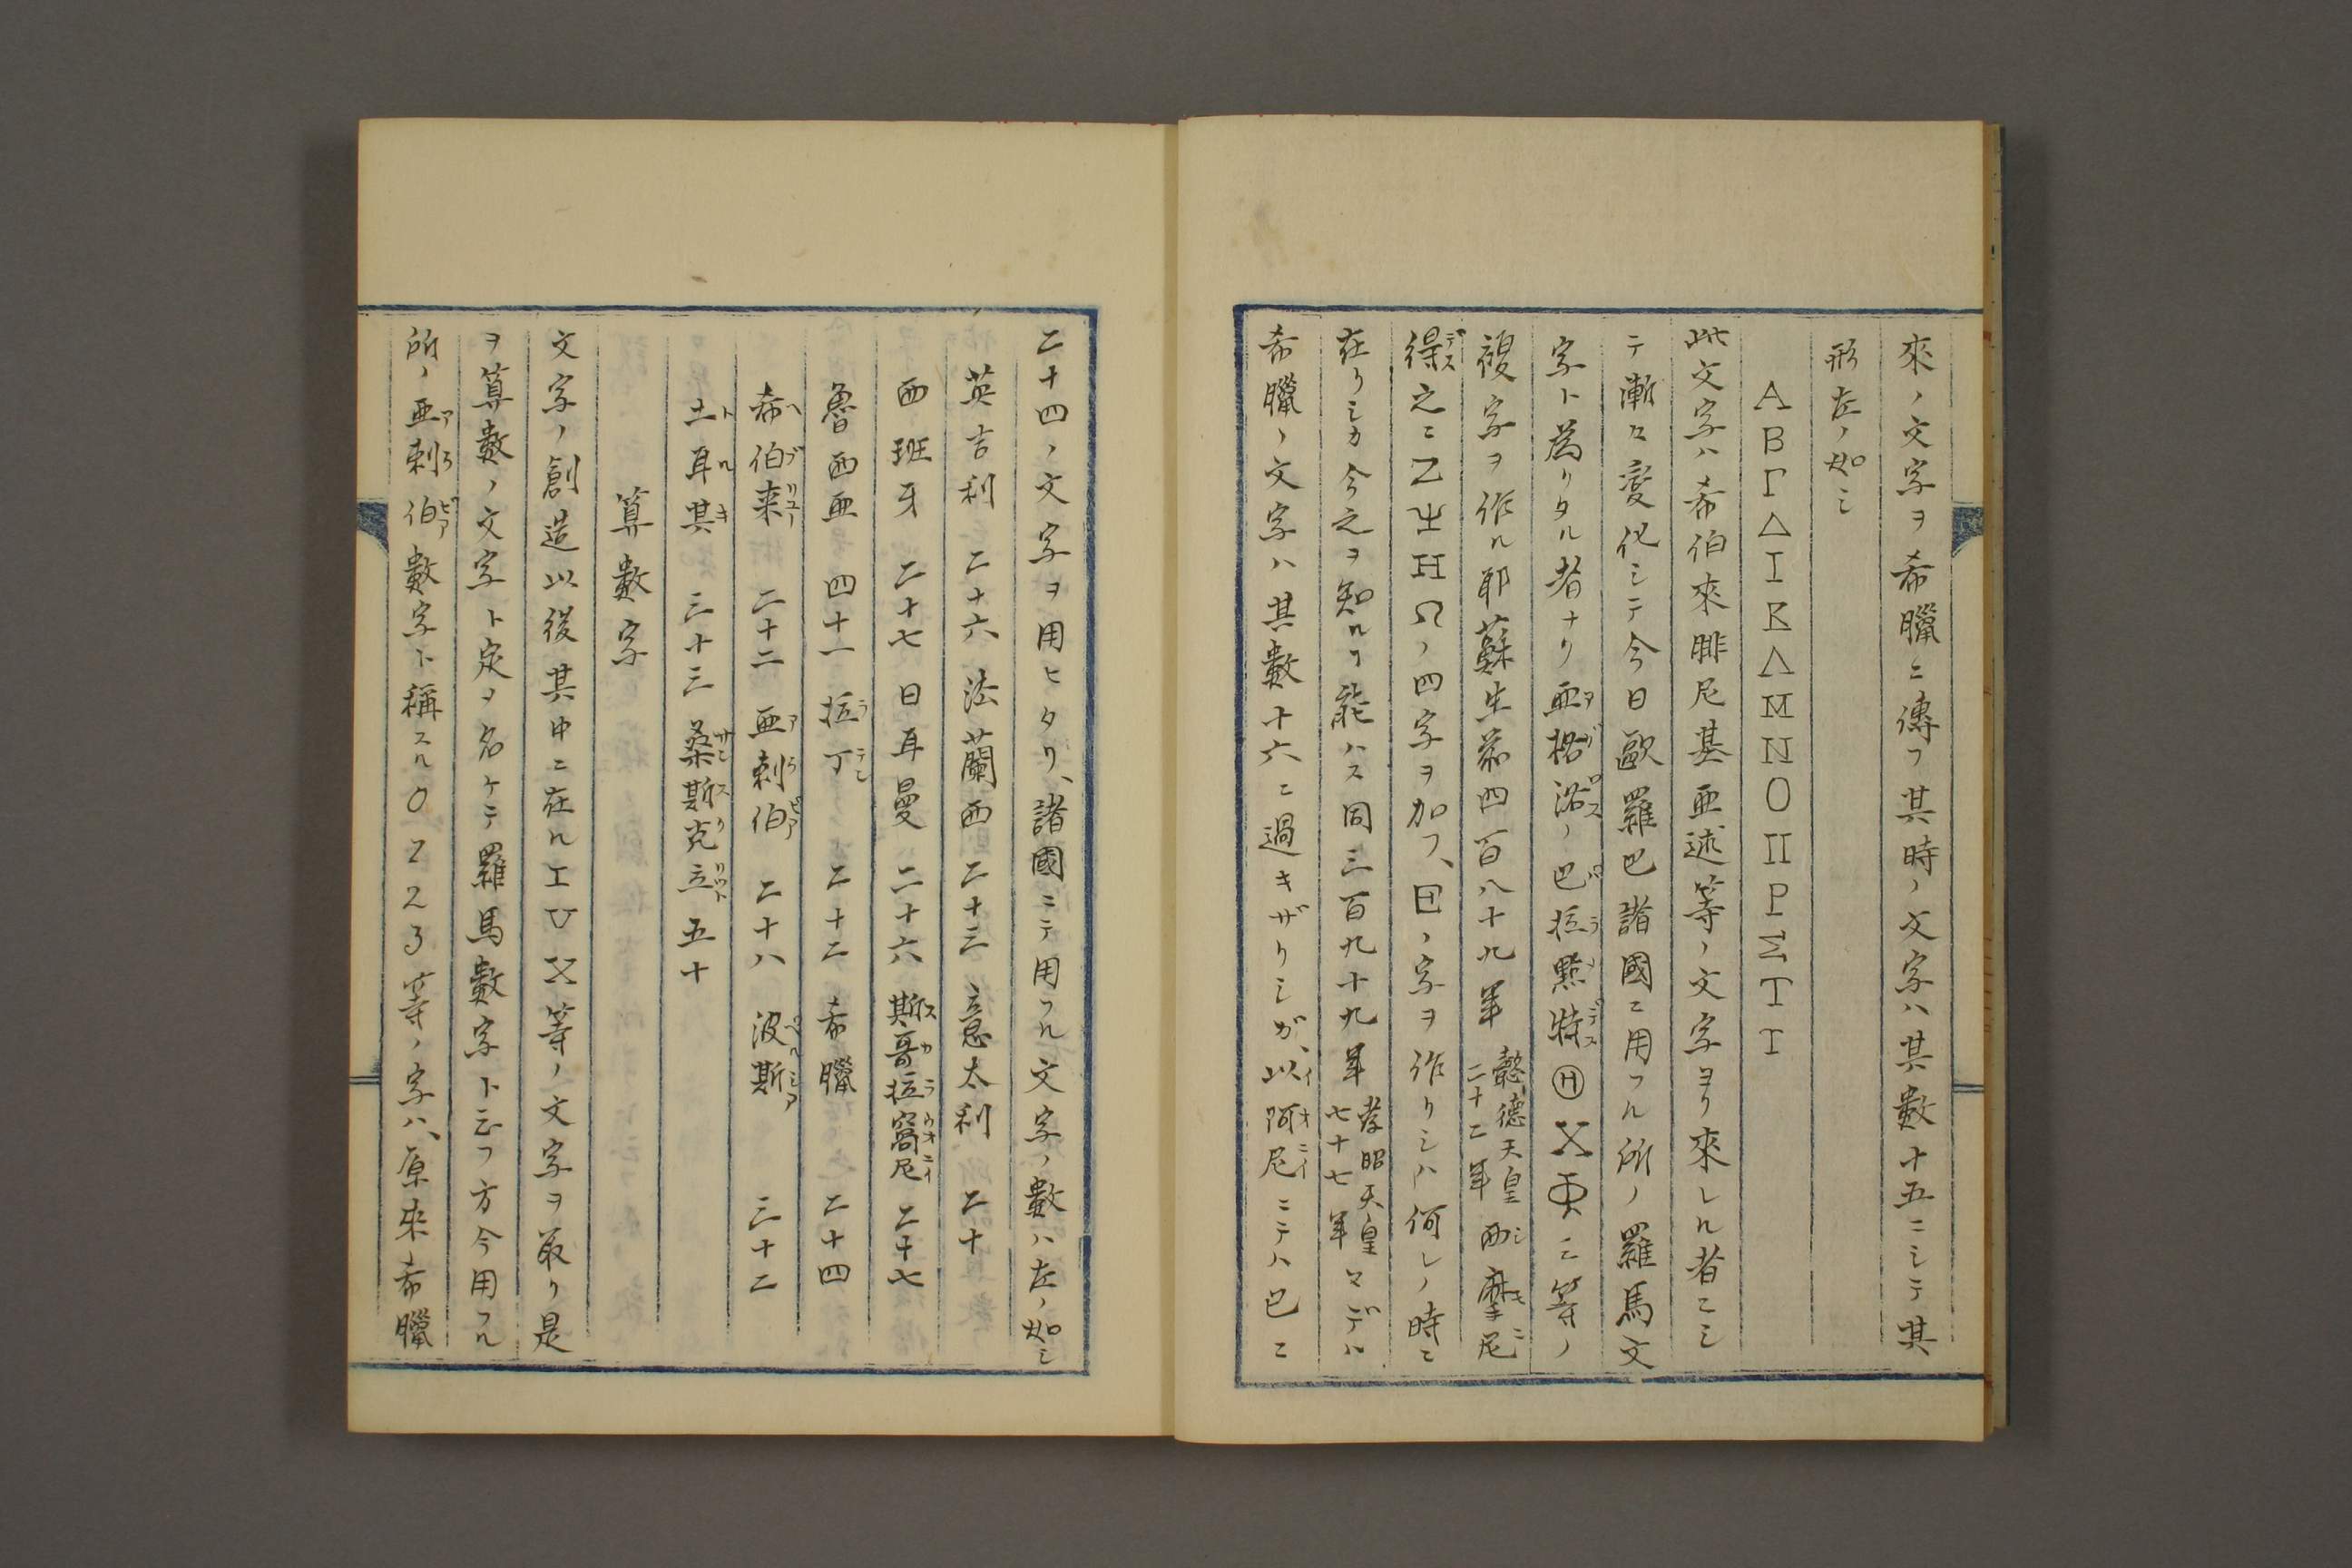 來ノ文字ヲ希臘ニ傳フ其時ノ文字ハ其數十五ニシテ其
形左ノ如シ
Α Β Γ Δ Ι Κ Λ Μ Ν Ο Π Ρ Σ Τ Τ
此文字ハ希伯來腓尼基亜述等ノ文字ヨリ來レル者ニシ
テ漸々變化シテ今日歐羅巴諸國ニ用フル所ノ羅馬文
字ト為リタル者ナリ亜格洛ノ巴拉黙特Ⓗ Χ Φ Ξ等ノ
複字ヲ作ル耶蘇生前四百八十九年懿德天皇二十二年西摩尼
得之ニΖ Η Ωノ四字ヲ加フ、日ノ字ヲ作リシハ何レノ時ニ
在リシカ今之ヲ知ルヿ能ハス同三百九十九年孝昭天皇七十七年マデハ
希臘ノ文字ハ其數十六ニ過キザリシガ、以阿尼ニテハ已ニ
二十四ノ文字ヲ用ヒタリ、諸國ニテ用フル文字ノ數ハ左ノ如シ
英吉利 二十六 法蘭西 二十三 意太利 二十
西班牙 二十七 日耳曼 二十六 斯哥拉窩尼 二十七
魯西亜 四十一 拉丁 二十二 希臘 二十四
希伯來 二十二 亜剌伯 二十八 波斯 三十二
土耳其 三十三 桑斯克立 五十
算數字
文字ノ創造以後其中ニ在ルI V X等ノ文字ヲ取リ是
ヲ算數ノ文字ト定ヲ名ケテ羅馬數字ト云フ方今用フル
所ノ亜剌伯數字ト稱スル0 1 2 3等ノ字ハ、原來希臘